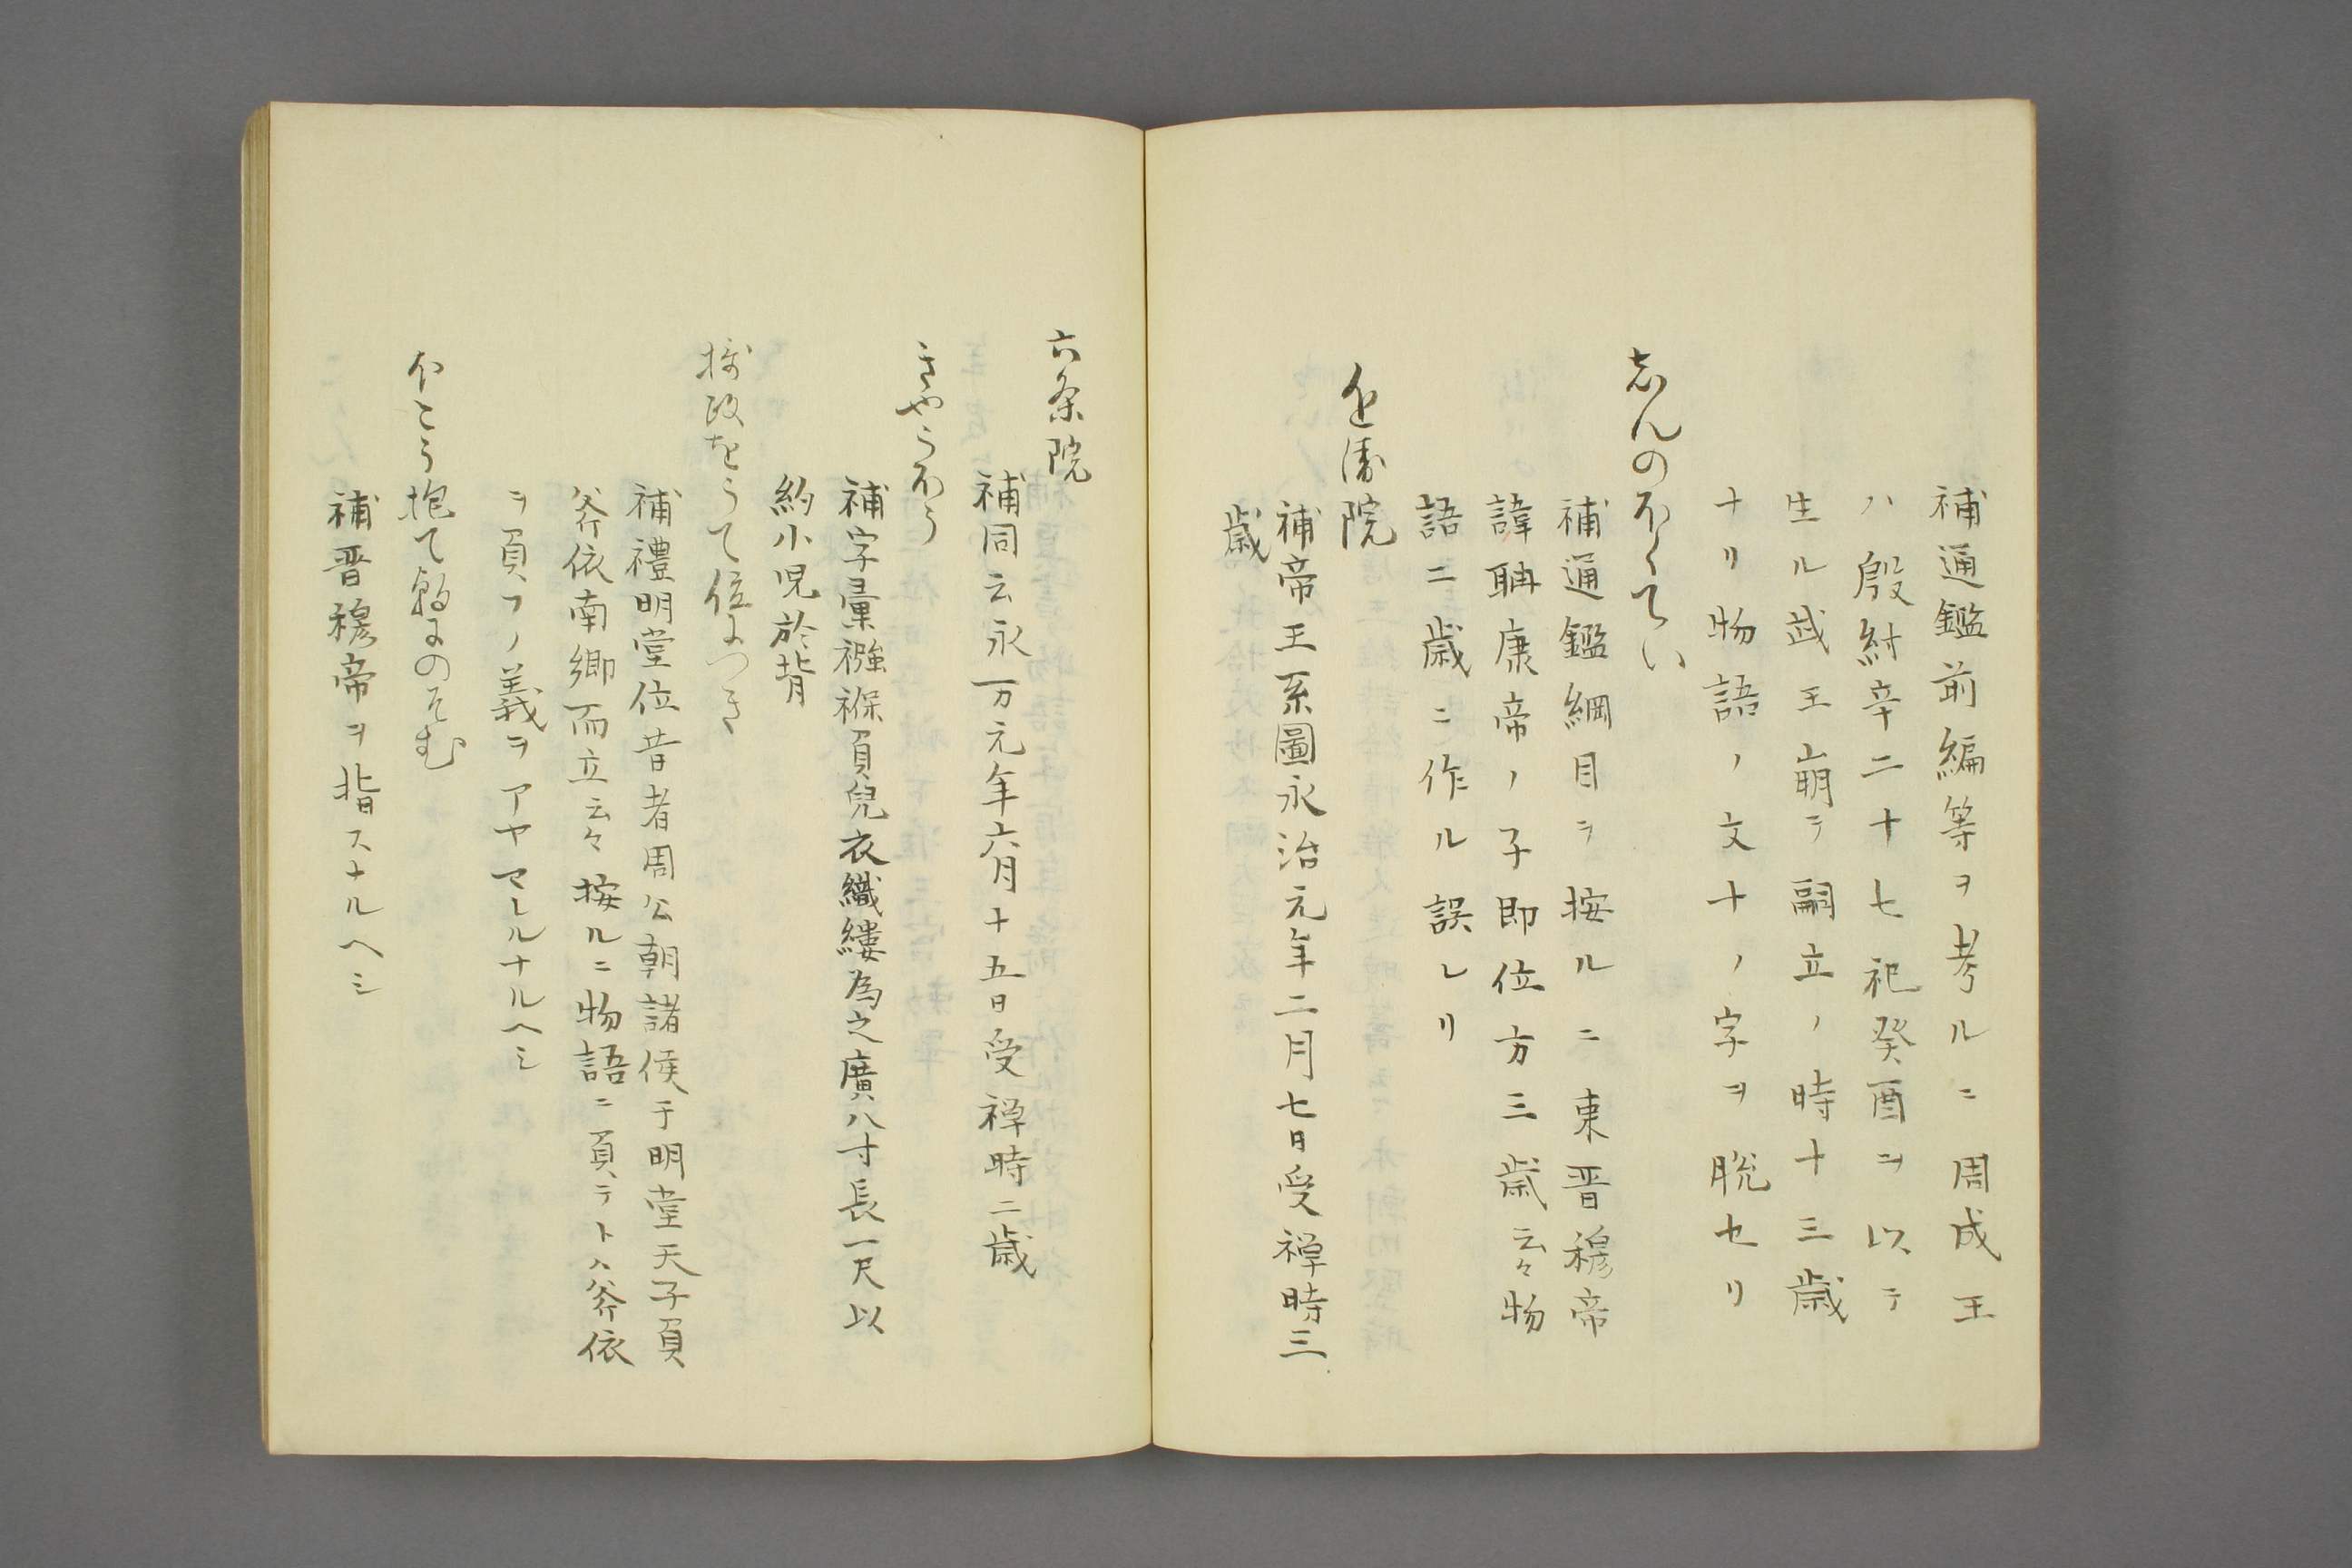 補通鑑前編等ヲ考ルニ周成王
ハ殷紂辛二十七祀癸酉ヲ以テ
生ル武王崩テ嗣立ノ時十三歳
ナリ物語ノ文十ノ字ヲ脱セリ
志んのほくてい
補通鑑綱目ヲ按ルニ東晋穆帝
諱聃康帝ノ子即位方三歳云々物
語ニ二歳ニ作ル誤レリ
近衛院
補帝王系圖永治元年二月七日受禅時三
歳
六条院
補同云永万元年六月十五日受禅時二歳
きやうほう
補字彙襁褓負兒衣織縷為之廣八寸長一尺以
約小児於背
摂政をうて位につき
補禮明堂位昔者周公朝諸侯于明堂天子負
斧依南郷而立云々按ルニ物語ニ負テトハ斧依
ヲ負フノ義ヲアヤマレルナルヘシ
ほこう抱て朝にのそむ
補晋穆帝ヲ指スナルヘシ